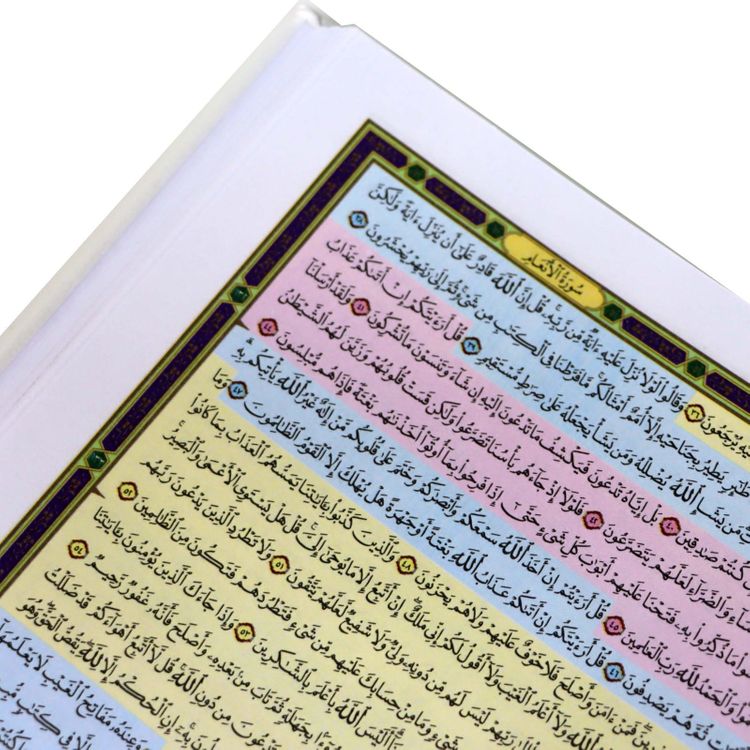 سُورَةُ الْأَنْعَامِ
يُرْجَعُونَ ٣٦ وَقَالُوا لَوْلَا نُزِّلَ عَلَيْهِ ءَايَةٌ مِّن رَّبِّهِۦ قُلْ إِنَّ اللَّهَ قَادِرٌ عَلَىٰ أَن يُنَزِّلَ ءَايَةً وَلَٰكِنَّ
يَطِيرُ بِجَنَاحَيْهِ إِلَّا أُمَمٌ أَمْثَالُكُم مَّا فَرَّطْنَا فِي الْكِتَٰبِ مِن شَيْءٍ ثُمَّ إِلَىٰ رَبِّهِمْ يُحْشَرُونَ ٣٨
مَن يَشَإِ اللَّهُ يُضْلِلْهُ وَمَن يَشَأْ يَجْعَلْهُ عَلَىٰ صِرَٰطٍ مُّسْتَقِيمٍ ٣٩ قُلْ أَرَءَيْتَكُمْ إِنْ أَتَىٰكُمْ عَذَابُ
كُنتُمْ صَٰدِقِينَ ٤٠ بَلْ إِيَّاهُ تَدْعُونَ فَيَكْشِفُ مَا تَدْعُونَ إِلَيْهِ إِن شَاءَ وَتَنسَوْنَ مَا تُشْرِكُونَ ٤١ وَلَقَدْ أَرْسَلْنَا
وَالضَّرَّاءِ لَعَلَّهُمْ يَتَضَرَّعُونَ ٤٢ فَلَوْلَا إِذْ جَاءَهُم بَأْسُنَا تَضَرَّعُوا وَلَٰكِن قَسَتْ قُلُوبُهُمْ وَزَيَّنَ لَهُمُ الشَّيْطَٰنُ
مَا ذُكِّرُوا بِهِۦ فَتَحْنَا عَلَيْهِمْ أَبْوَٰبَ كُلِّ شَيْءٍ حَتَّىٰ إِذَا فَرِحُوا بِمَا أُوتُوا أَخَذْنَٰهُم بَغْتَةً فَإِذَا هُم مُّبْلِسُونَ ٤٤
وَالْحَمْدُ لِلَّهِ رَبِّ الْعَٰلَمِينَ ٤٥ قُلْ أَرَءَيْتُمْ إِنْ أَخَذَ اللَّهُ سَمْعَكُمْ وَأَبْصَٰرَكُمْ وَخَتَمَ عَلَىٰ قُلُوبِكُم مَّنْ إِلَٰهٌ غَيْرُ اللَّهِ يَأْتِيكُم بِهِ
ثُمَّ هُمْ يَصْدِفُونَ ٤٦ قُلْ أَرَءَيْتَكُمْ إِنْ أَتَىٰكُمْ عَذَابُ اللَّهِ بَغْتَةً أَوْ جَهْرَةً هَلْ يُهْلَكُ إِلَّا الْقَوْمُ الظَّٰلِمُونَ ٤٧ وَمَا
فَمَنْ ءَامَنَ وَأَصْلَحَ فَلَا خَوْفٌ عَلَيْهِمْ وَلَا هُمْ يَحْزَنُونَ ٤٨ وَالَّذِينَ كَذَّبُوا بِـَٔايَٰتِنَا يَمَسُّهُمُ الْعَذَابُ بِمَا كَانُوا
اللَّهِ وَلَا أَعْلَمُ الْغَيْبَ وَلَا أَقُولُ لَكُمْ إِنِّي مَلَكٌ إِنْ أَتَّبِعُ إِلَّا مَا يُوحَىٰ إِلَيَّ قُلْ هَلْ يَسْتَوِي الْأَعْمَىٰ وَالْبَصِيرُ
رَبِّهِمْ لَيْسَ لَهُم مِّن دُونِهِۦ وَلِيٌّ وَلَا شَفِيعٌ لَّعَلَّهُمْ يَتَّقُونَ ٥١ وَلَا تَطْرُدِ الَّذِينَ يَدْعُونَ رَبَّهُم
شَيْءٍ وَمَا مِنْ حِسَابِكَ عَلَيْهِم مِّن شَيْءٍ فَتَطْرُدَهُمْ فَتَكُونَ مِنَ الظَّٰلِمِينَ ٥٢
أَلَيْسَ اللَّهُ بِأَعْلَمَ بِالشَّٰكِرِينَ ٥٣ وَإِذَا جَاءَكَ الَّذِينَ يُؤْمِنُونَ بِـَٔايَٰتِنَا
بِجَهَٰلَةٍ ثُمَّ تَابَ مِن بَعْدِهِۦ وَأَصْلَحَ فَأَنَّهُۥ غَفُورٌ رَّحِيمٌ ٥٤
تَدْعُونَ مِن دُونِ اللَّهِ قُل لَّا أَتَّبِعُ أَهْوَاءَكُمْ قَدْ ضَلَلْتُ
بِهِ إِنِ الْحُكْمُ إِلَّا لِلَّهِ يَقُصُّ الْحَقَّ وَهُوَ
وَعِندَهُۥ مَفَاتِحُ الْغَيْبِ لَا يَعْلَمُهَا
إِلَّا فِي كِتَٰبٍ